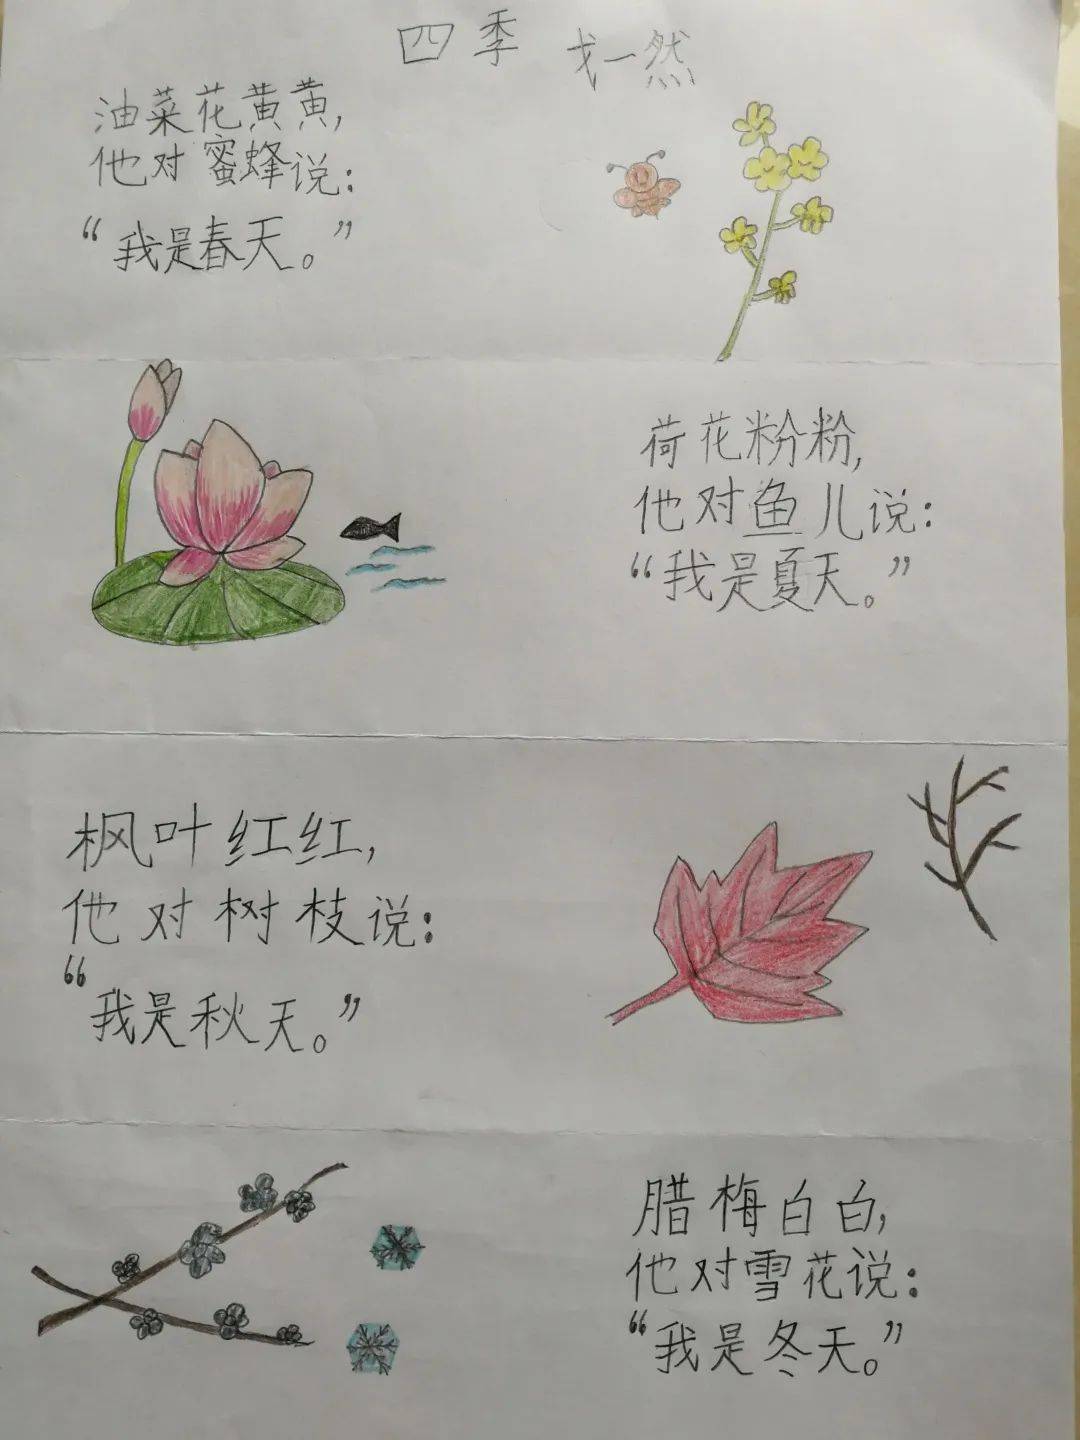 四季 戈一然
油菜花黄黄,
他对蜜蜂说:
“我是春天。”
荷花粉粉,
他对鱼儿说:
“我是夏天。”
枫叶红红,
他对树枝说:
“我是秋天。”
腊梅白白,
他对雪花说:
“我是冬天。”